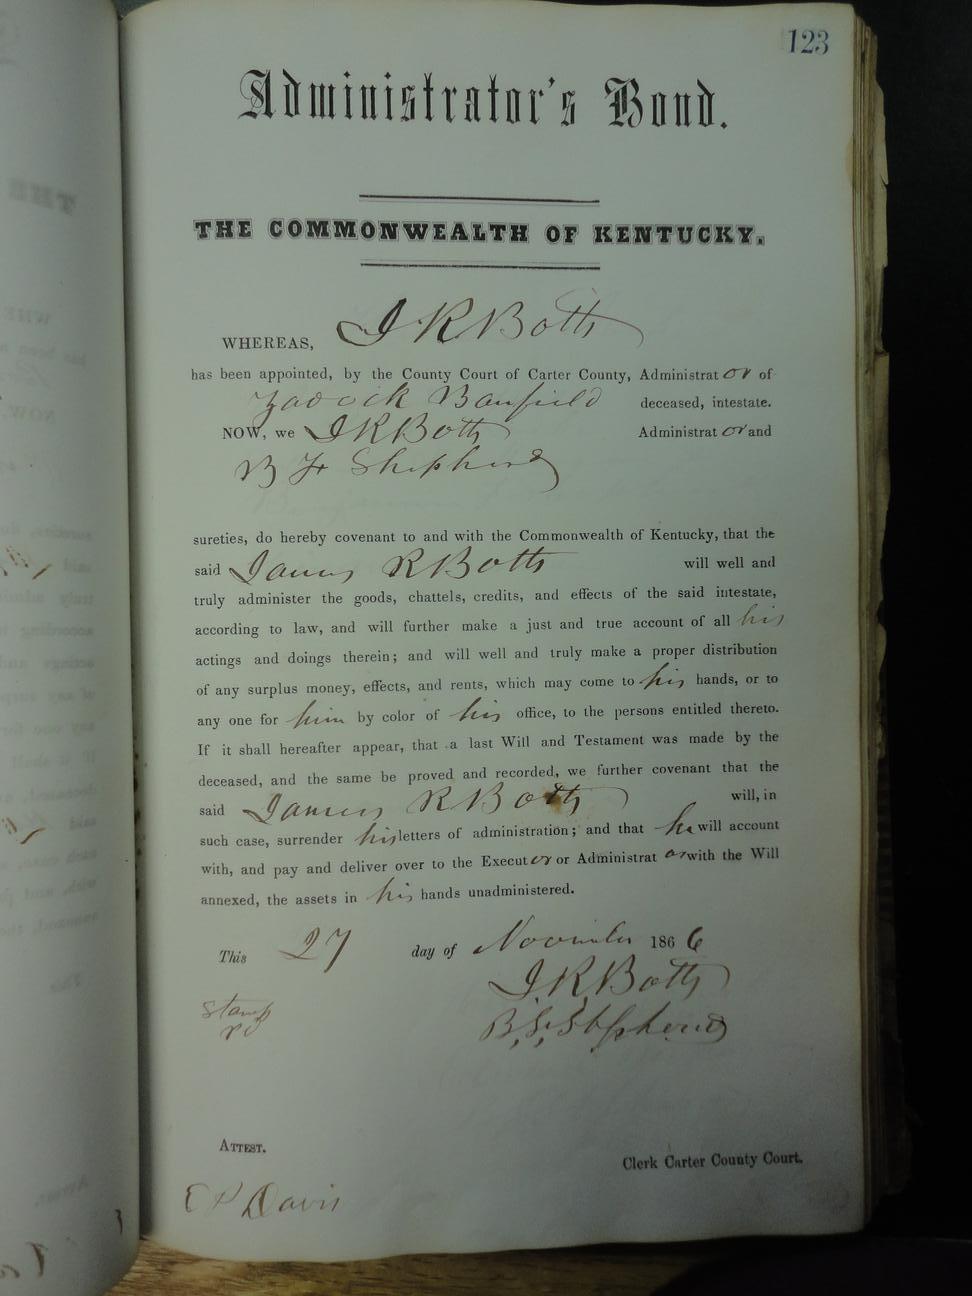 123
Administrator's Bond.
THE COMMONWEALTH OF KENTUCKY.
WHEREAS, J R Botts
has been appointed, by the County Court of Carter County, Administrat or of
Zadock Banfield deceased, intestate.
NOW, we J R Botts Administrat or and
B F Shepherd
sureties, do hereby covenant to and with the Commonwealth of Kentucky, that the
said James R Botts will well and
truly administer the goods, chattels, credits, and effects of the said intestate,
according to law, and will further make a just and true account of all his
actings and doings therein; and will well and truly make a proper distribution
of any surplus money, effects, and rents, which may come to his hands, or to
any one for him by color of his office, to the persons entitled thereto.
If it shall hereafter appear, that a last Will and Testament was made by the
deceased, and the same be proved and recorded, we further covenant that the
said James R Botts will, in
such case, surrender his letters of administration; and that he will account
with, and pay and deliver over to the Execut or or Administrat or with the Will
annexed, the assets in his hands unadministered.
This 27 day of November 1866
J. R. Botts
B. F. Shepherd
Stamp
ATTEST.
Clerk Carter County Court.
Davis